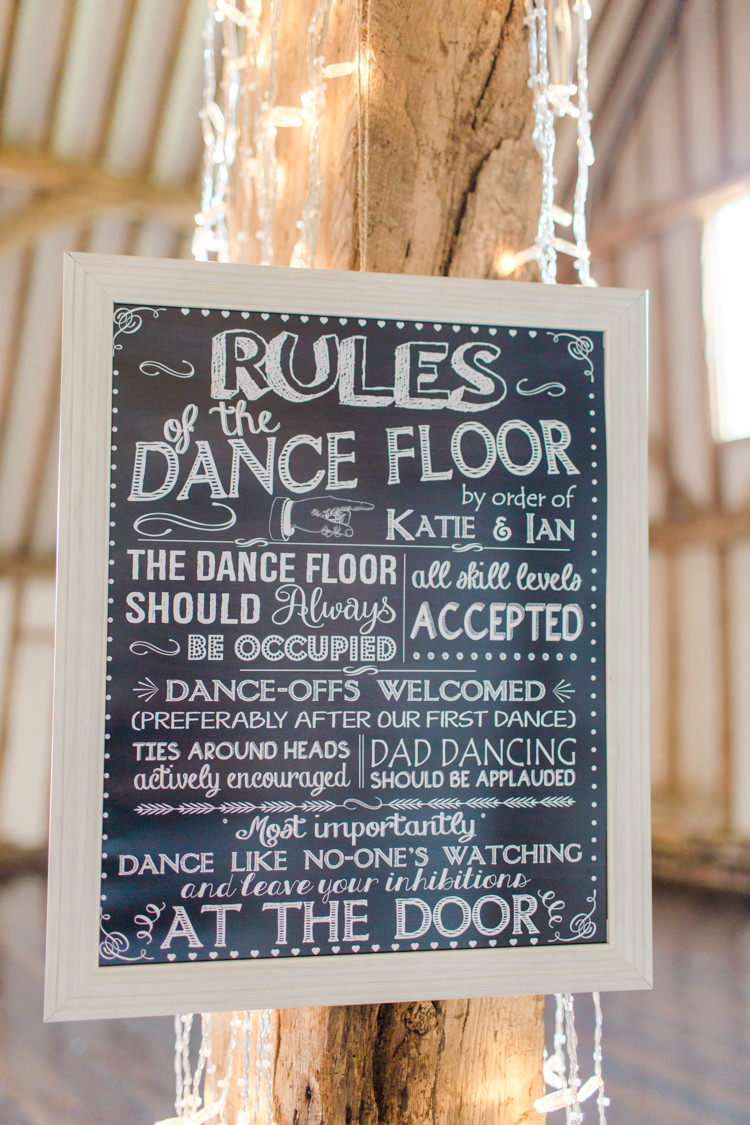 RULES
of the
DANCE FLOOR
by order of
KATIE & IAN
THE DANCE FLOOR
SHOULD Always
BE OCCUPIED
all skill levels
ACCEPTED
DANCE-OFFS WELCOMED
(PREFERABLY AFTER OUR FIRST DANCE)
TIES AROUND HEADS
actively encouraged
DAD DANCING
SHOULD BE APPLAUDED
'Most importantly'
DANCE LIKE NO-ONE'S WATCHING
and leave your inhibitions
AT THE DOOR